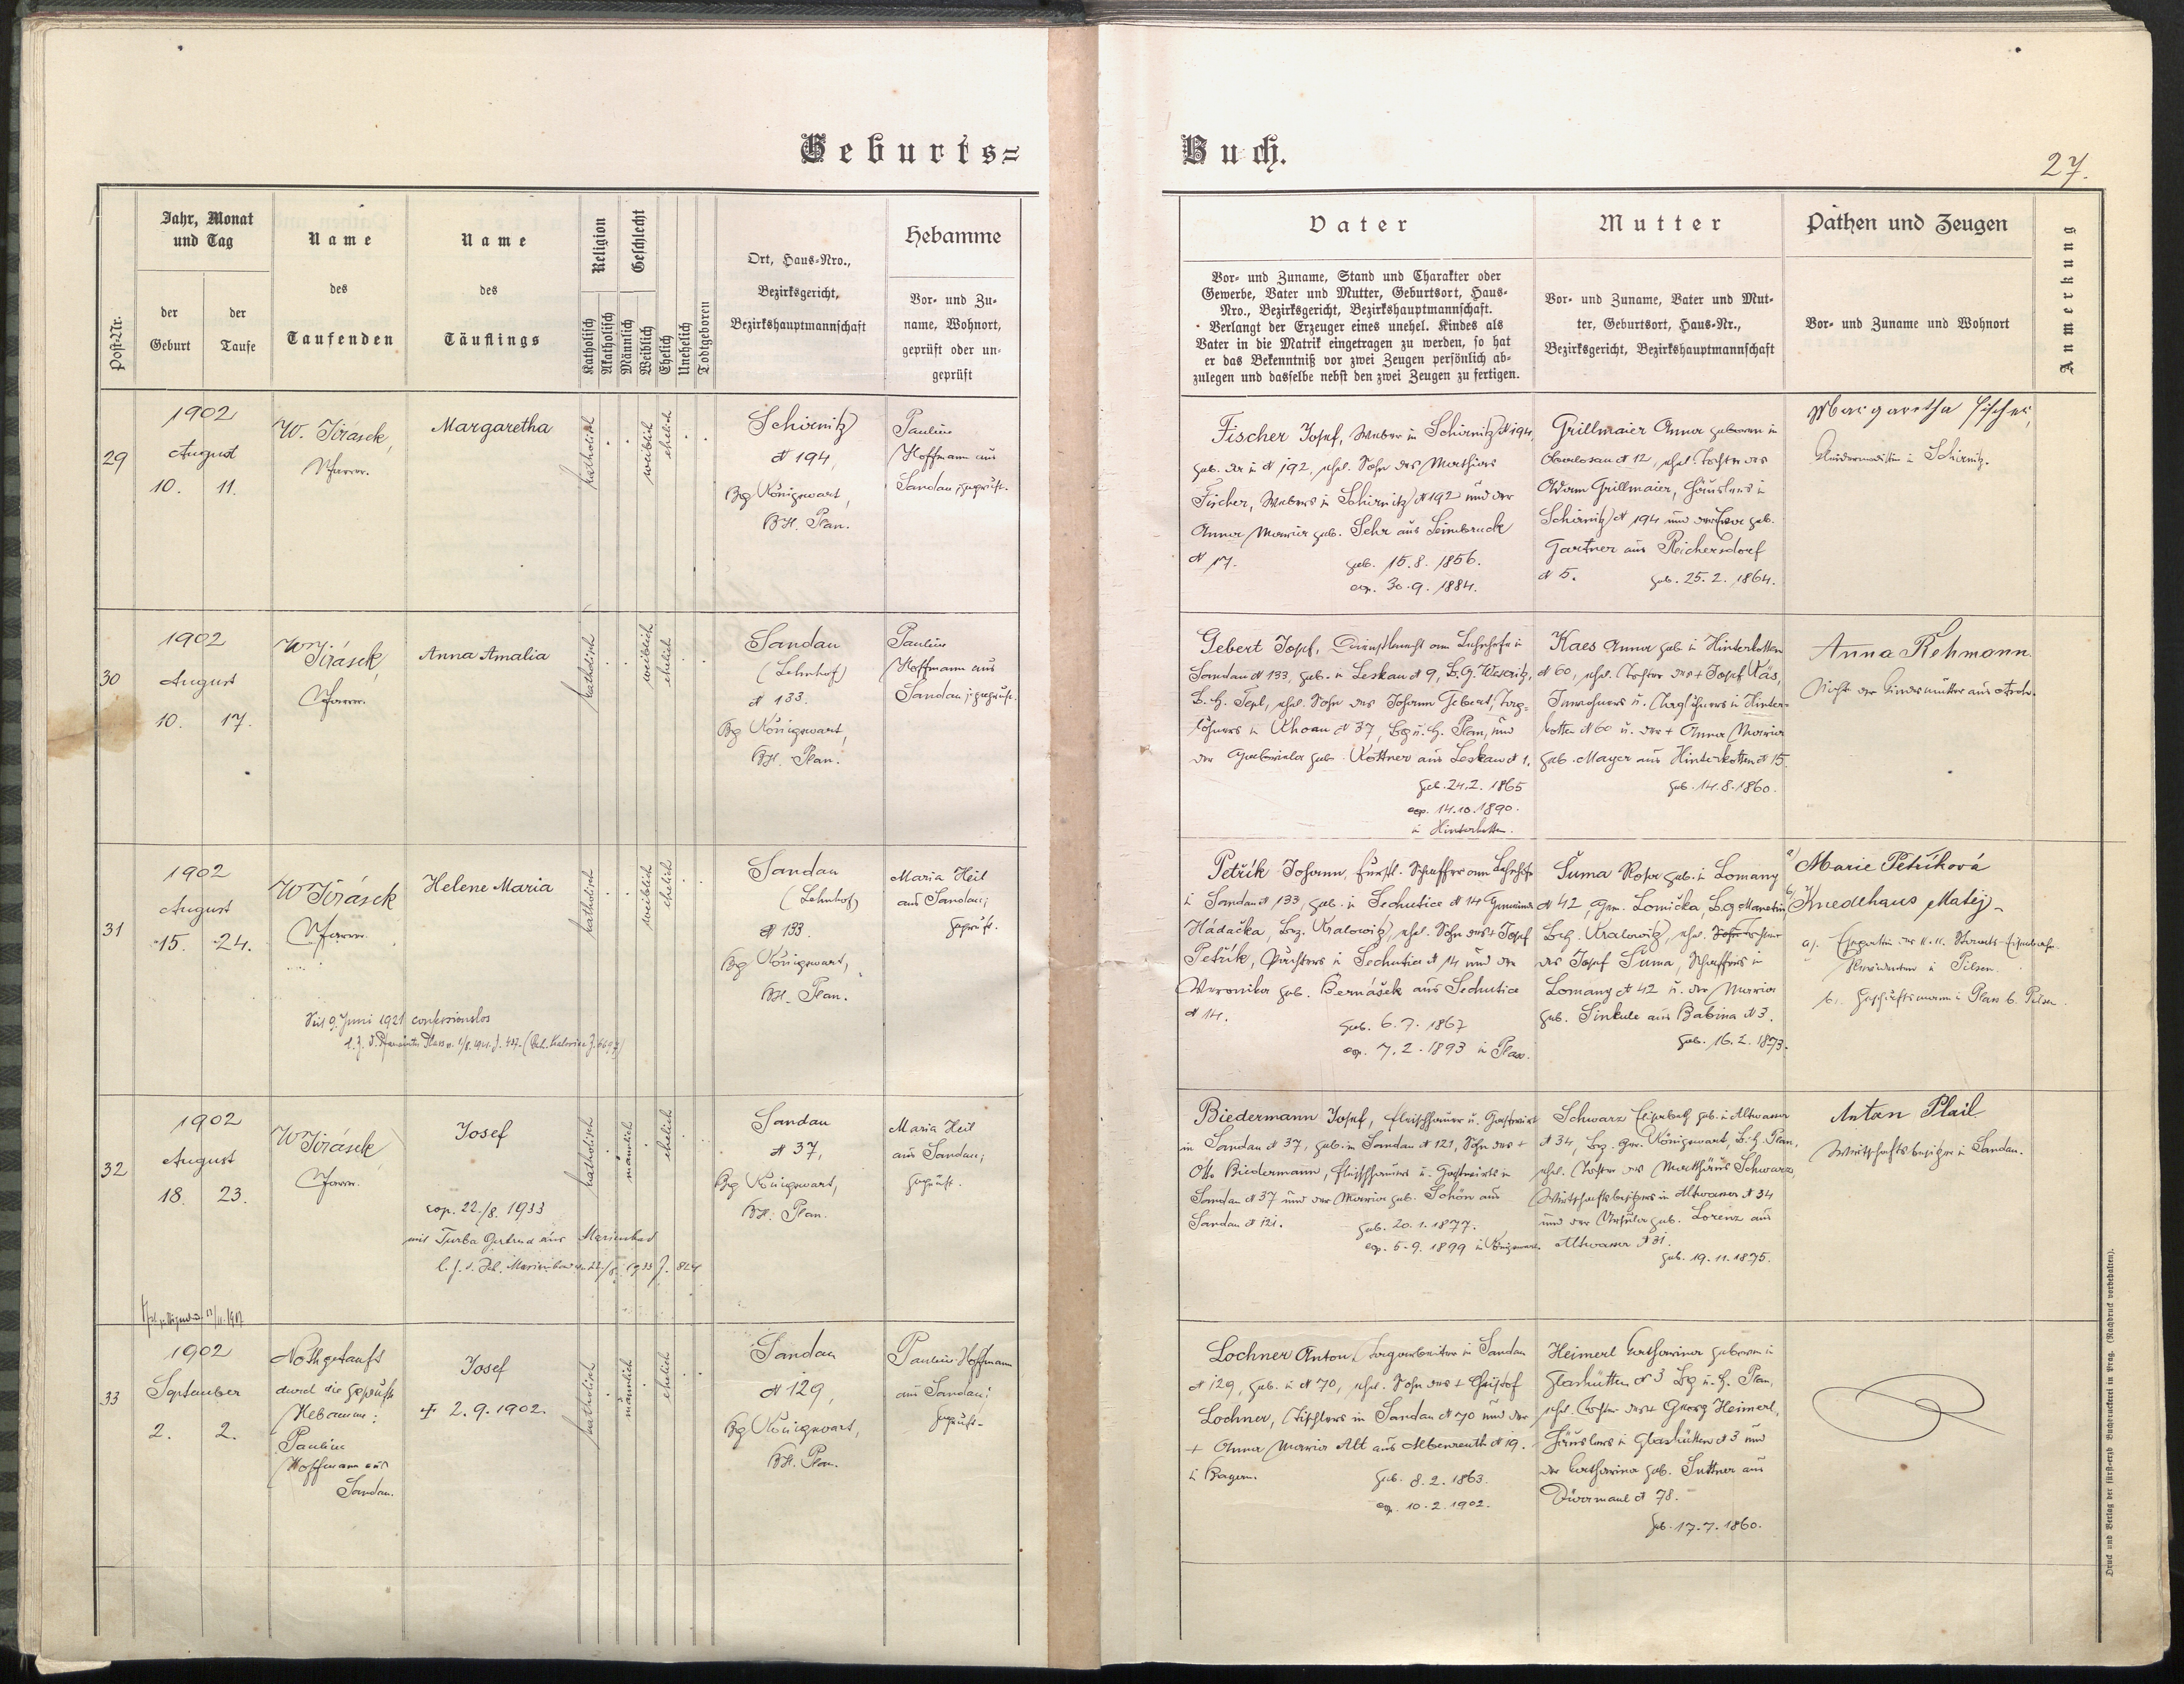 Geburts=
Buch.
27.
Post-Nr.
Jahr, Monat
und Tag
der
Geburt
der
Taufe
Name
des
Taufenden
Name
des
Täuflings
Religion
Katholisch
Akatholisch
Geschlecht
Männlich
Weiblich
Ehelich
Unehelich
Todtgeboren
Ort, Haus-Nro.,
Bezirksgericht,
Bezirkshauptmannschaft
Hebamme
Vor- und Zu-
name, Wohnort,
geprüft oder un-
geprüft
Vater
Vor- und Zuname, Stand und Charakter oder
Gewerbe, Vater und Mutter, Geburtsort, Haus-
Nro., Bezirksgericht, Bezirkshauptmannschaft.
Verlangt der Erzeuger eines unehel. Kindes als
Vater in die Matrik eingetragen zu werden, so hat
er das Bekenntniß vor zwei Zeugen persönlich ab-
zulegen und dasselbe nebst den zwei Zeugen zu fertigen.
Mutter
Vor- und Zuname, Vater und Mut-
ter, Geburtsort, Haus-Nr.,
Bezirksgericht, Bezirkshauptmannschaft
Pathen und Zeugen
Vor- und Zuname und Wohnort
Anmerkung
29
1902
August
10. 11.
W. Jirásek,
Pfarrer.
Margaretha
katholisch
weiblich
ehelich
Schirnitz
N 194,
Bg Königswart,
BH. Plan.
Pauline
Hoffmann aus
Sandau, geprüft.
Fischer Josef, Weber in Schirnitz N 194,
geb. da in N 192, ehel. Sohn des Mathias
Fischer, Webers in Schirnitz N 192 und der
Anna Maria geb. Sehr aus Leimbruck
N 17.
geb. 15.8.1856.
cop. 30.9.1884.
Grillmaier Anna geboren in
Oberlosau N 12, ehel. Tochter des
Adam Grillmaier, Häuslers in
Schirnitz N 194 und der Eva geb.
Gartner aus Reichersdorf
N 5.
geb. 25.2.1864.
Margaretha Fischer,
in Schirnitz.
30
1902
August
10. 17.
W Jirásek,
Pfarrer.
Anna Amalia
katholisch
weiblich
ehelich
Sandau
(Lehnhof)
N 133.
Bg Königswart,
BH. Plan.
Pauline
Hoffmann aus
Sandau; geprüft.
Gebert Josef, Dienstknecht am Lehnhofe in
Sandau N 133, geb. in Leskau N 9, B.G. Weseritz,
B.H. Tepl, ehel. Sohn des Johann Gebert, Tag-
löhners in Khoau N 37, Bg u. H. Plan, und
der Gabriela geb. Kottner aus Leskau N 1.
geb. 24.2.1865
cop. 14.10.1890.
in Hinterkotten.
Kaes Anna geb. in Hinterkotten
N 60, ehel. Tochter des + Josef Käs,
Inwohners u. Taglöhners in Hinter-
kotten N 60 u. der + Anna Maria
geb. Mayer aus Hinterkotten N 15.
geb. 14.8.1860.
Anna Rehmann.
Nichte der Kindesmutter aus
31
1902
August
15. 24.
W Jirásek
Pfarrer.
Helene Maria
katholisch
weiblich
ehelich
Sandau
(Lehnhof)
N 133
Bg Königswart,
BH. Plan.
Maria Heil
aus Sandau;
geprüft.
Seit 9. Juni 1921 confessionslos
Petřík Johann, fürstl. Schaffer am Lehnhofe
in Sandau N 133, geb. in Sechutice N 14 Gemeinde
Hádačka, Bez. Kralowitz, ehel. Sohn des + Josef
Petřík, Pächters in Sechutice N 14 und der
Veronika geb. Bernášek aus Sechutice
N 14.
geb. 6.7.1867
cop. 7.2.1893 in Plass.
Šuma Rosa geb. in Lomany
N 42, Gem. Lomička, B.g. Manetin,
Bzh. Kralowitz, ehel. Tochter
des Josef Šuma, Schaffers in
Lomany N 42 u. der Maria
geb. Sinkule aus Babina N 3.
geb. 16.2.1873.
a) Marie Petříková
b) Knedlhaus Matěj
a). Ehegattin des k.k. Staats-Eisenbahn-
in Pilsen.
b. Geschäftsmann in Plass b. Pilsen.
32
1902
August
18. 23.
W Jirásek,
Pfarrer.
Josef
cop. 22./8. 1933
mit Turba Gertrud aus Marienbad
katholisch
männlich
ehelich
Sandau
N 37,
Bg Königswart,
BH. Plan.
Maria Heil
aus Sandau;
geprüft.
Biedermann Josef, Fleischhauer u. Gastwirt
in Sandau N 37, geb. in Sandau N 121, Sohn des +
Otto Biedermann, Fleischhauers u. Gastwirts in
Sandau N 37 und der Maria geb. Schön aus
Sandau N 121.
geb. 20.1.1877.
cop. 5.9.1899 in Königswart.
Schwarz Elisabeth geb. in Altwasser
N 34, Bez. Ger. Königswart, B.H. Plan,
ehel. Tochter des Matthäus Schwarz,
Wirtschaftsbesitzers in Altwasser N 34
und der Ursula geb. Lorenz aus
Altwasser N 31.
geb. 19.11.1875.
Anton Plail
Wirtschaftsbesitzer in Sandau.
33
1902
September
2. 2.
Nothgetauft
durch die geprüfte
Hebamme:
Pauline
Hoffmann aus
Sandau.
Josef
+ 2.9.1902.
katholisch
männlich
ehelich
Sandau
N 129,
Bg Königswart,
BH. Plan.
Pauline Hoffmann
aus Sandau;
geprüft.
Lochner Anton, Tagarbeiter in Sandau
N 129, geb. in N 70, ehel. Sohn des + Christof
Lochner, Tischlers in Sandau N 70 und der
+ Anna Maria Alt aus Albenreuth N 19.
in Bayern.
geb. 8.2.1863.
cop. 10.2.1902.
Heimerl Katharina geboren in
Glashütten N 3 Bg u. H. Plan,
ehel. Tochter des + Georg Heimerl,
Häuslers in Glashütten N 3 und
der Katharina geb. Suttner aus
Dürrmaul N 78.
geb. 17.7.1860.
Druck und Verlag der fürst-erzb Buchdruckerei in Prag. (Nachdruck vorbehalten).